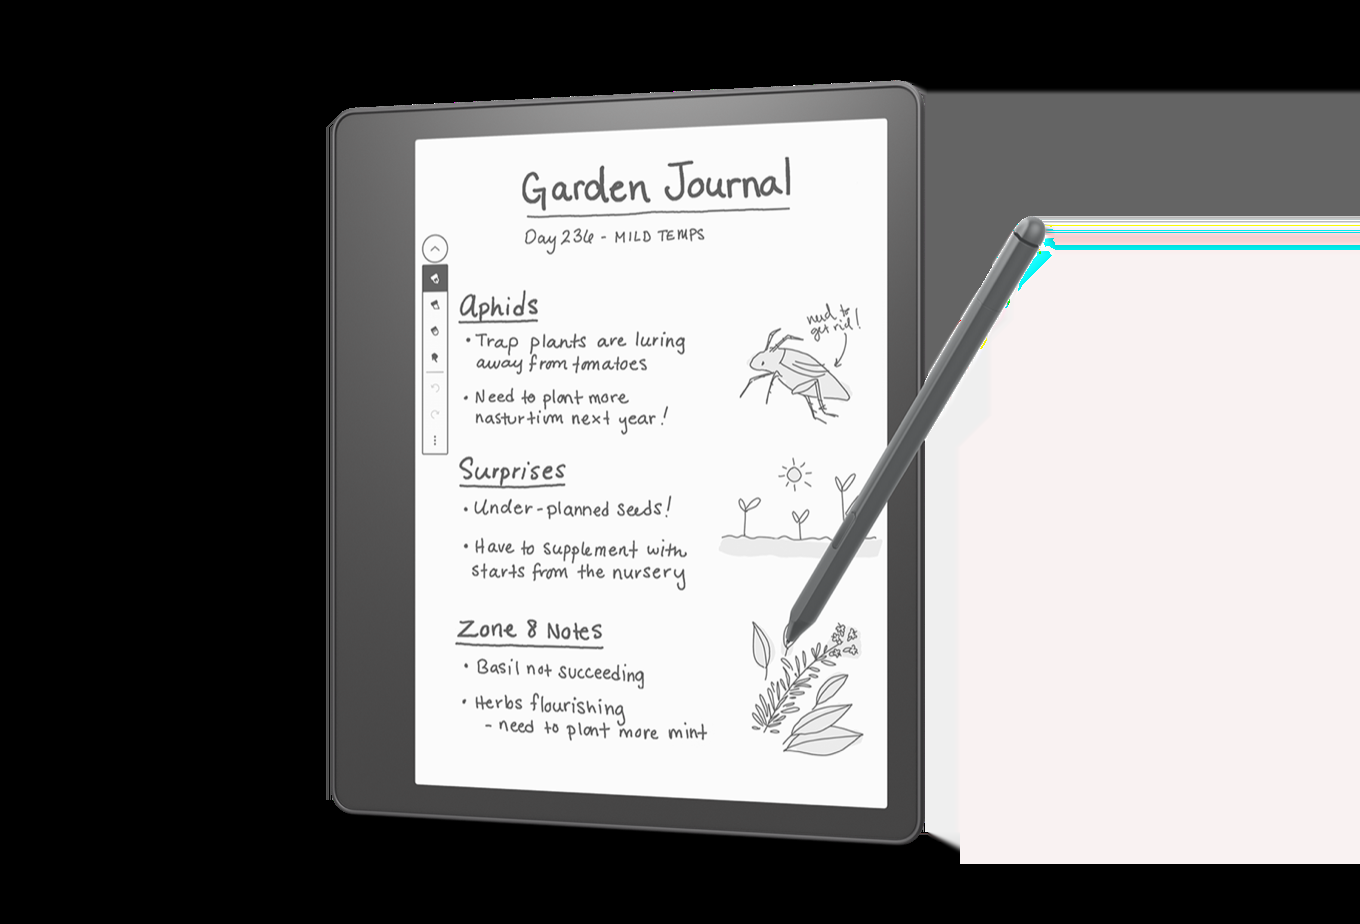 Garden Journal
Day 236 - MILD TEMPS
Aphids
• Trap plants are luring
away from tomatoes
• Need to plant more
nasturtium next year!
need to
get rid!
Surprises
• Under-planned seeds!
• Have to supplement with
starts from the nursery
Zone 8 Notes
• Basil not succeeding
• Herbs flourishing
- need to plant more mint